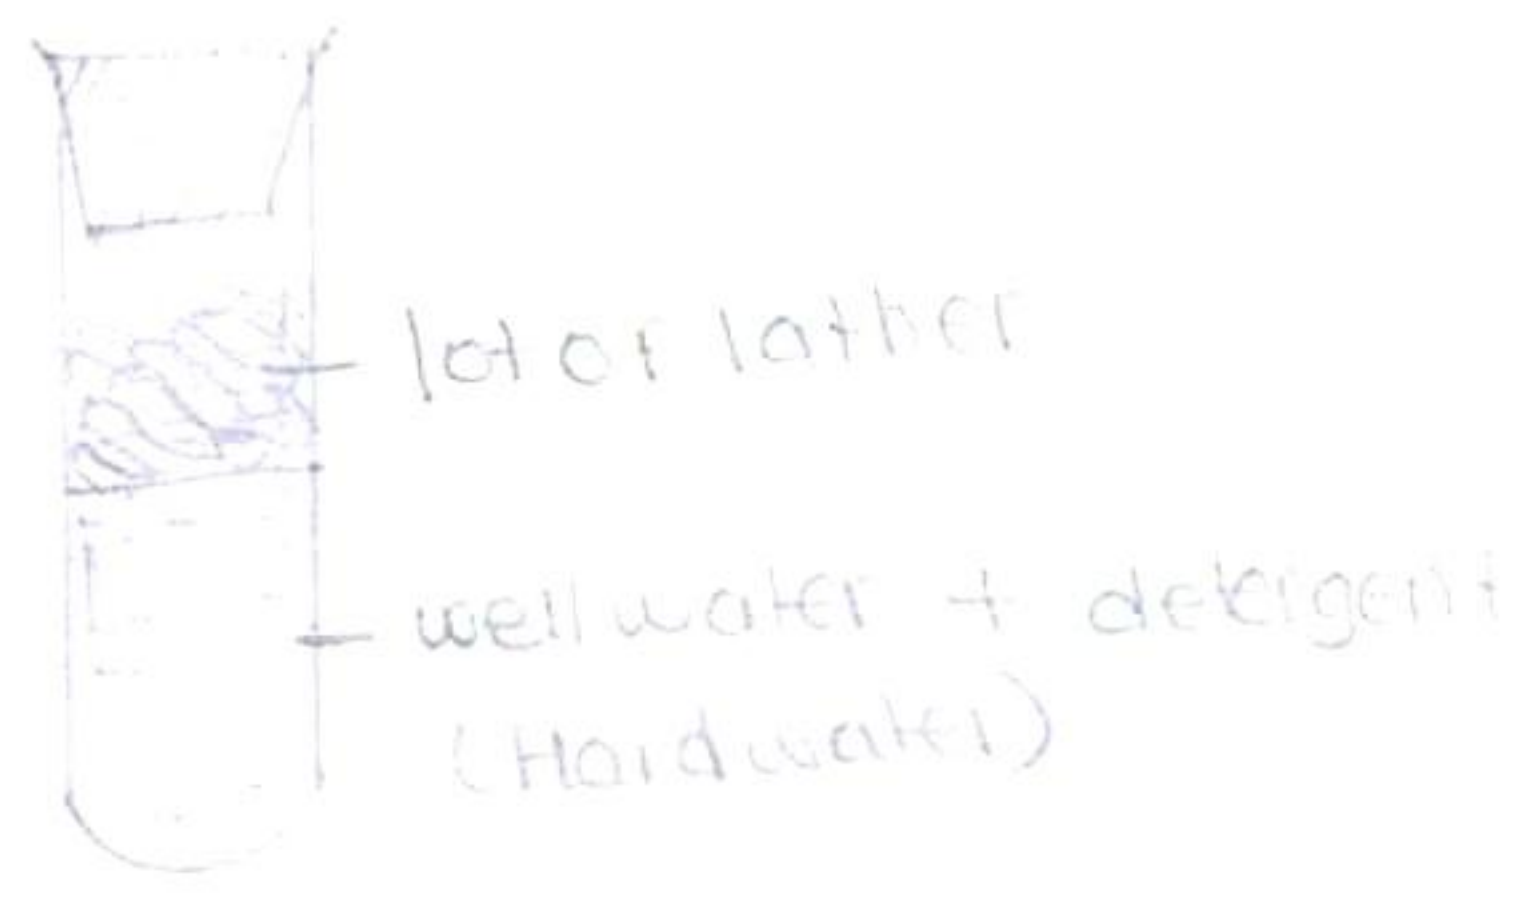 lot of lather
well water + detergent
(Hard water)